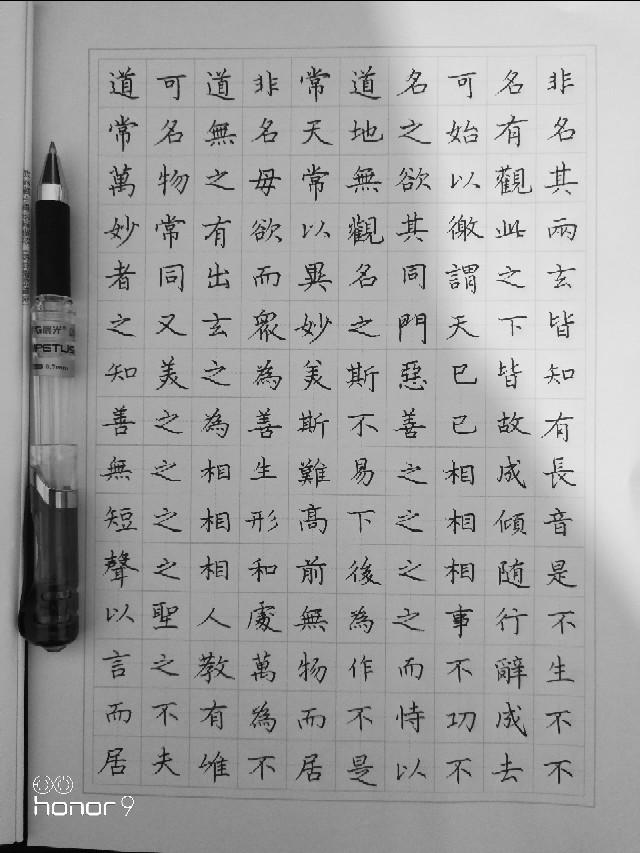 道可道非常道名可名非
常名無名天地之始有名
萬物之毋常無欲以觀其
妙常有欲以觀其徼此兩
者同出而異名同謂之玄
之又玄眾妙之門天下皆
知美之為美斯惡已皆知
善之為善斯不善已故有
無之相生難易之相成長
短之相形高下之相傾音
聲之相和前後之相随是
以聖人處無為之事行不
言之教萬物作而不辭生
而不有為而不恃功成不
居夫唯不居是以不去不
晨光
MPETUS
honor 9